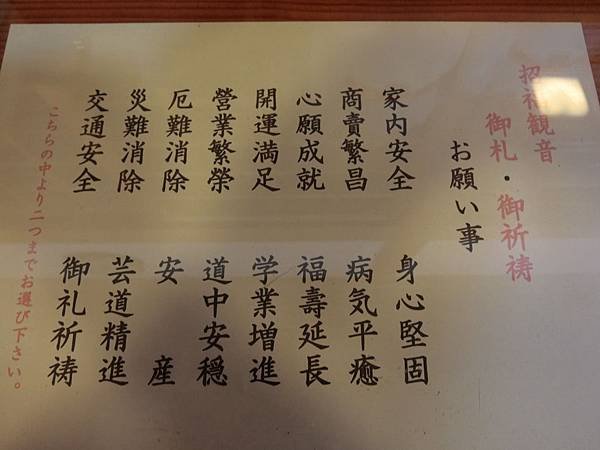 招福観音
御札・御祈祷
お願い事
家内安全
商賣繁昌
心願成就
開運満足
營業繁榮
厄難消除
災難消除
交通安全
身心堅固
病気平癒
福壽延長
学業増進
道中安穏
安産
芸道精進
御礼祈祷
こちらの中より二つまでお選び下さい。